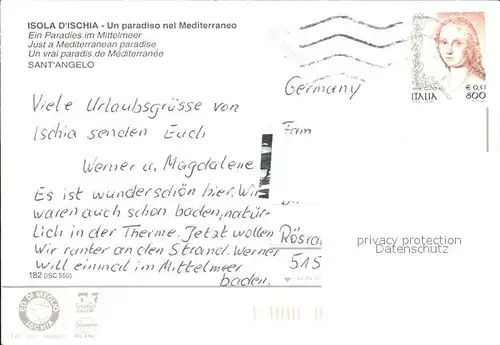 ISOLA D'ISCHIA - Un paradiso nel Mediterraneo
Ein Paradies im Mittelmeer
Just a Mediterranean paradise
Un vrai paradis de Méditerranée
SANT'ANGELO
Viele Urlaubsgrüsse von
Ischia senden Euch
Werner u. Magdalene
Es ist wunderschön hier. Wir
waren auch schon baden, natür-
lich in der Therme. Jetzt wollen
wir runter an den Strand. Werner
will einmal im Mittelmeer
baden.
182 (ISC 550)
ED. DI MEGLIO
ISCHIA
Germany
Fam
Rösra
515
ITALIA
€ 0,41
800
privacy protection
Datenschutz